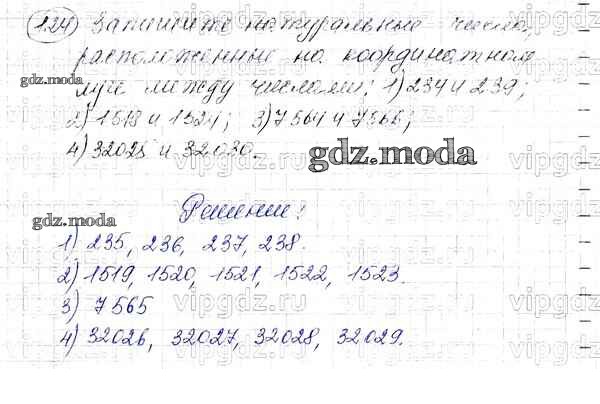 1.24 Запишите натуральные числа,
расположенные на координатном
gdz.moda
луче между числами: 1) 234 и 239;
2) 1518 и 1524; 3) 7564 и 7566;
4) 32025 и 32030.
gdz.moda
Решение:
gdz.moda
1) 235, 236, 237, 238.
2) 1519, 1520, 1521, 1522, 1523.
3) 7565
4) 32026, 32027, 32028, 32029.
vipgdz.ru